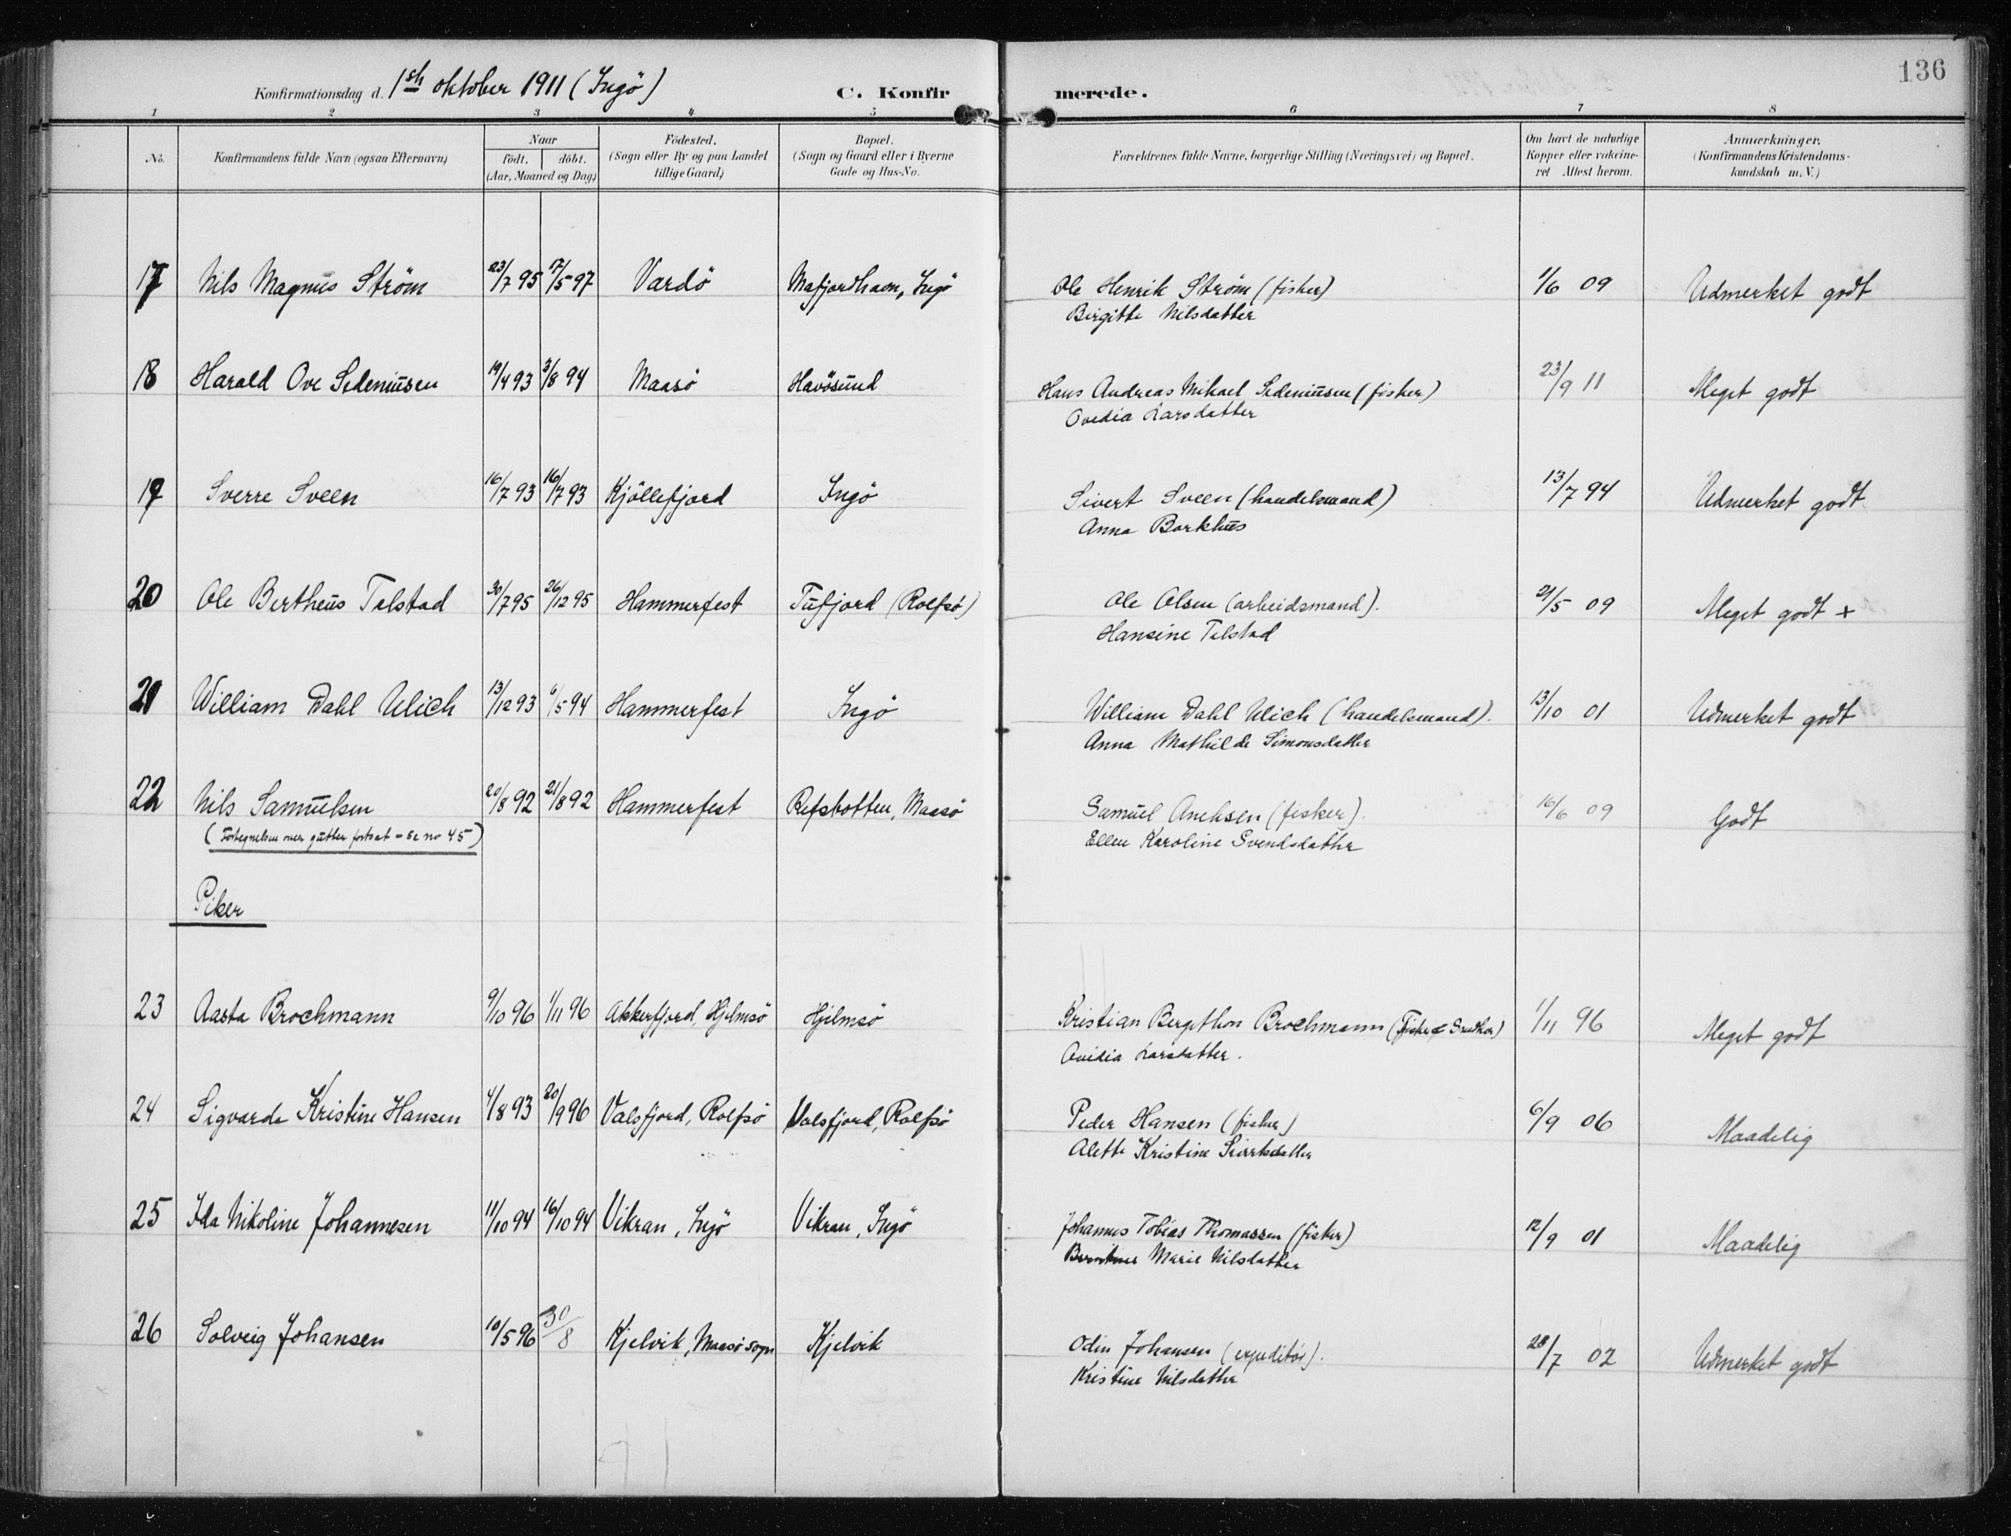 136
Konfirmationsdag d. 1ste oktober 1911 (Ingö) C. Konfirmerede.
1 2 3 4 5 6 7 8
No. Konfirmandens fulde Navn (ogsaa Efternavn) Naar födt. döbt. (Aar, Maaned og Dag) Födested. (Sogn eller By og paa Landet tillige Gaard) Bopæl. (Sogn og Gaard eller i Byerne Gade og Hus-No. Forældrenes fulde Navne, borgerlige Stilling (Næringsvei) og Bopæl. Om havt de naturlige Kopper eller vakcineret Attest herom. Anmerkninger. (Konfirmandens Kristendomskundskab m. V.)
17 Nils Magnus Ström 23/7 95 17/5 97 Vardö Mafjordhavn, Ingö Ole Henrik Ström (fisker) 1/6 09 Udmerket godt
Birgitte Nilsdatter
18 Harald Ove Sedeniusen 19/4 93 3/8 94 Maasö Havösund Hans Andreas Mikael Sedeniusen (fisker) 23/9 11 Meget godt
Ovedia Larsdatter
19 Sverre Sveen 16/7 93 16/7 93 Kjöllefjord Ingö Sivert Sveen (handelsmand) 13/7 94 Udmerket godt
Anna Borkhus
20 Ole Bertheus Telstad 30/7 95 26/12 95 Hammerfest Tufjord (Rolfsö) Ole Olsen (arbeidsmand). 21/5 09 Meget godt +
Hansine Telstad
21 William Dahl Ulich 13/12 93 6/5 94 Hammerfest Ingö William Dahl Ulich (handelsmand). 13/10 01 Udmerket godt
Anna Mathilde Simonsdatter
22 Nils Samuelsen 20/8 92 21/8 92 Hammerfest Refsbotten, Maasö Samuel (fisker). 16/6 09 Godt
(Fortegnelsen over gutter fortsat - se no 45) Ellen Karoline Svendsdatter
Piker
23 Aasta Brochmann 9/10 96 1/11 96 Akkerfjord, Hjelmsö Hjelmsö Kristian Bergithon Brochmann (Fisker & Snedker) 1/11 96 Meget godt
Ovidia Larsdatter.
24 Sigvarda Kristine Hansen 4/8 93 20/9 96 Valsfjord, Rolfsö Valsfjord, Rolfsö Peder Hansen (fisker) 6/9 06 Maadelig
Alette Kristine
25 Ida Nikoline Johannesen 11/10 94 16/10 94 Vikran, Ingö Vikran, Ingö Johannes Tobias Thomassen (fisker) 12/9 01 Maadelig
Marie Nilsdatter
26 Solveig Johansen 10/5 96 30/8 Kjelvik, Maasö sogn Kjelvik Odin Johansen (expeditör). 28/7 02 Udmerket godt
Kristine Nilsdatter